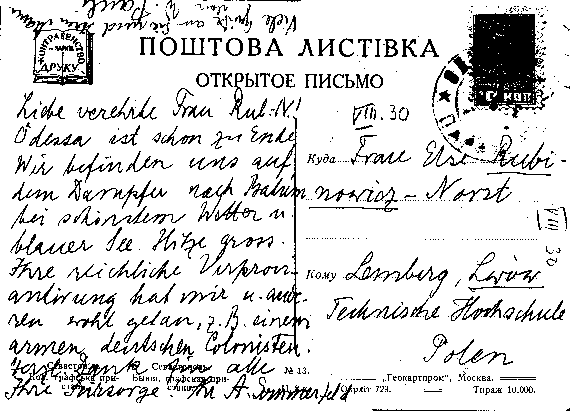 Viele Grüße an Sie und
КОНТРАГЕНСТВО
ДРУКУ
ПОШТОВА ЛИСТІВКА
ОТКРЫТОЕ ПИСЬМО
Liebe verehrte Frau Rub.-N!
Odessa ist schon zu Ende
Wir befinden uns auf
dem Dampfer nach Batum
bei schönstem Wetter u.
blauer See. Hitze gross.
Ihre reichliche Verprovi-
antirung hat mir u. ande-
ren wohl getan, z. B. einem
armen deutschen Colonisten.
Dank für alle
Ihre Fürsorge Ihr A. Sommerfeld
VIII. 30
Куда Frau Else Rubi-
nowicz - Norst
VIII 30
Кому Lemberg, Lwów
Technische Hochschule
Polen
№ 13.
„Геокартпром", Москва.
Тираж 10.000.